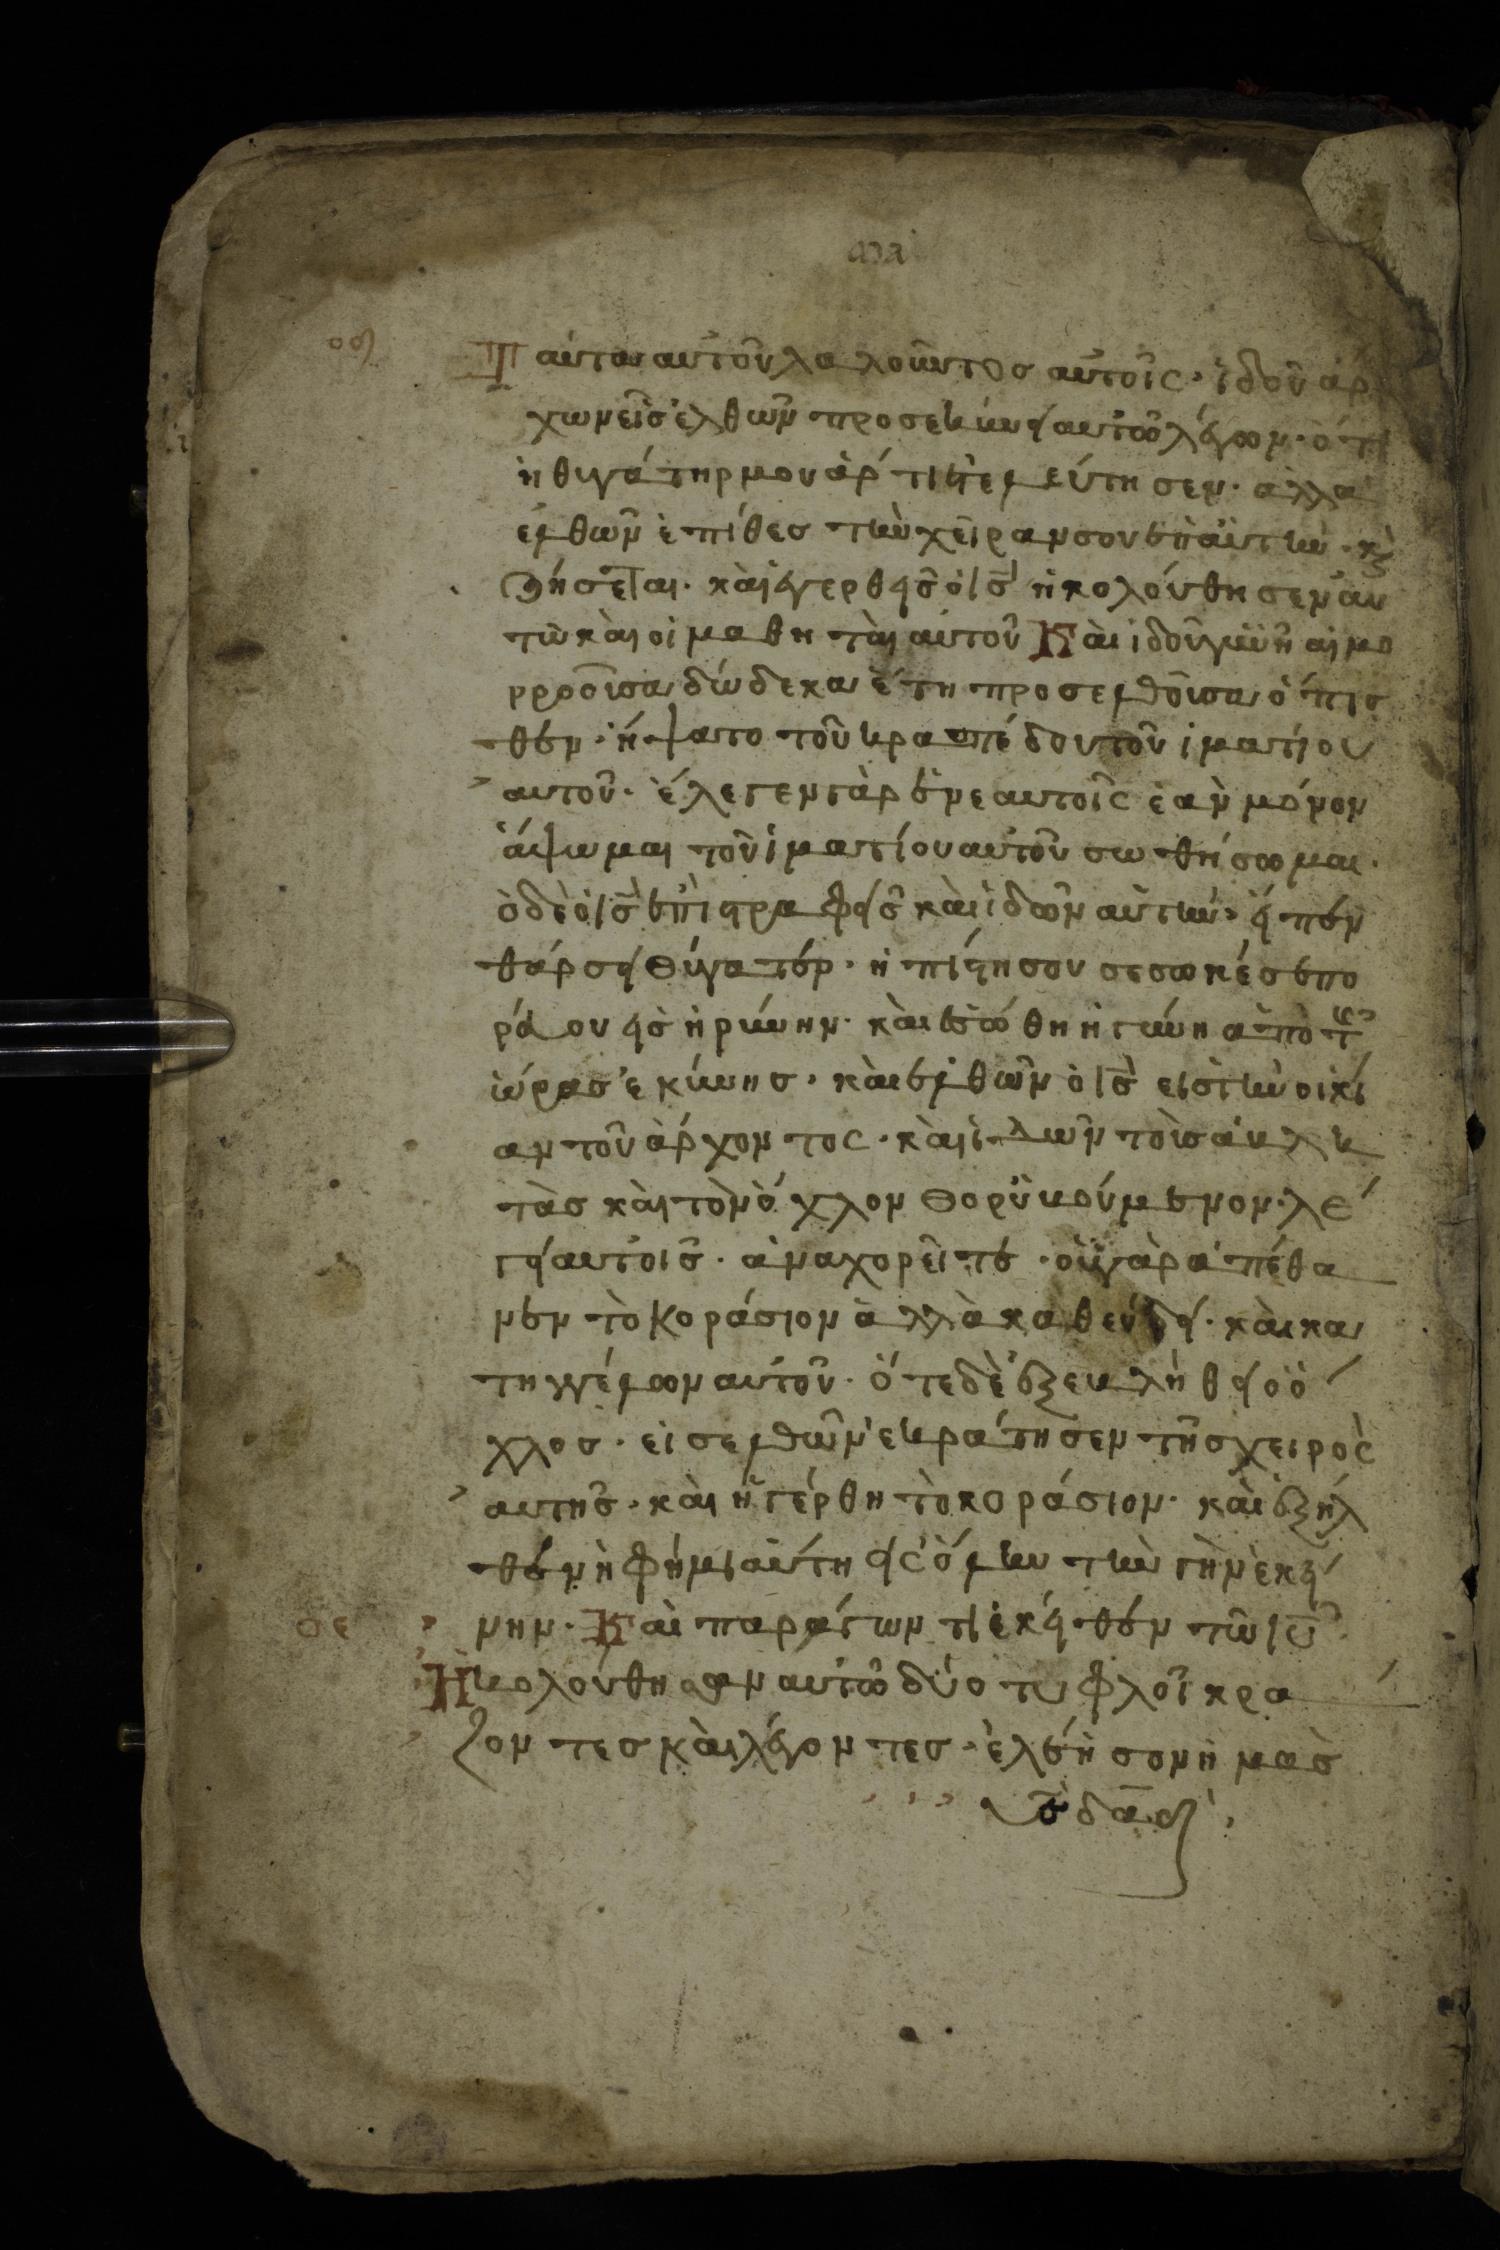 Ταύτα αὐτοῦ λαλοῦντος αὐτοῖς· ἰδοῦ ἄρ
χων εἰσελθὼν προσεκύνει αὐτῶ λέγων· ὅτι
ἡ θιγάτηρ μου ἄρτι ἐτελεύτησεν· ἀλλὰ
ἐλθὼν ἐπίθες τὴν χεῖραν σου ἐπ αὐτὴν· κ
ζήσεται· καὶ ἐγερθεὶς ὁ ις ἠκολούθησεν αυ
τῶ καὶ οἱ μαθηταὶ αὐτοῦ Καὶ ἰδοῦ γυνῆ αἱμο
ρροοῦσα δώδεκα ἔτη προσελθοῦσα ὄπισ
θεν· ἥψατο τοῦ κρασπέδου τοῦ ἱματίου
αυτοῦ· ἔλεγεν γὰρ ἐν εαυτοῖς ἐαν μόνον
ἅψωμαι τοῦ ἱματίου αὐτοῦ σωθήσωμαι·
ὁ δὲ ις ἐπιστραφεὶς καὶ ἰδὼν αὐτὴν· εἶπεν
θάρσει θύγατερ· ἡ πίστη σου σεσωκέσε πο
ρέυου εἰς ἠρήνην· καὶ ἐσώθη ἡ γυνὴ ἀπὸ τῆς
ὥρας ἐκήνης· καὶ ἐλθὼν ὁ ις εἰς τὴν οἰκί
αν τοῦ ἄρχοντος· καὶ ἰδὼν τοὶς αὐλη
τὰς καὶ τὸν ὄχλον θορυβούμενον· λέ
γει αὐτοῖς· ἀναχορεῖτε· οὐ γὰρ ἀπέθα
νεν τὸ κοράσιον ἀλλὰ καθεύδει· καὶ κα
τηγγέλων αὐτοῦ· ὅτε δὲ ἐξεβλήθει ὁ ὄ
χλος· εἰσελθὼν ἐκράτησεν τῆς χειρὸς
αυτῆς· καὶ ἠγέρθη τὸ κοράσιον· καὶ ἐξήλ
θεν ἡ φήμι αὕτη εἰς ὅλην τὴν γὴν ἐκεί
νην· Καὶ παράγων τι ἐκείθεν τῶ ιυ
Ηκολούθησαν αὐτῶ δύο τυφλοῖ κρα
ζοντες καὶ λέγοντες· ἐλέησον ἡμας
υς δαδ
οε